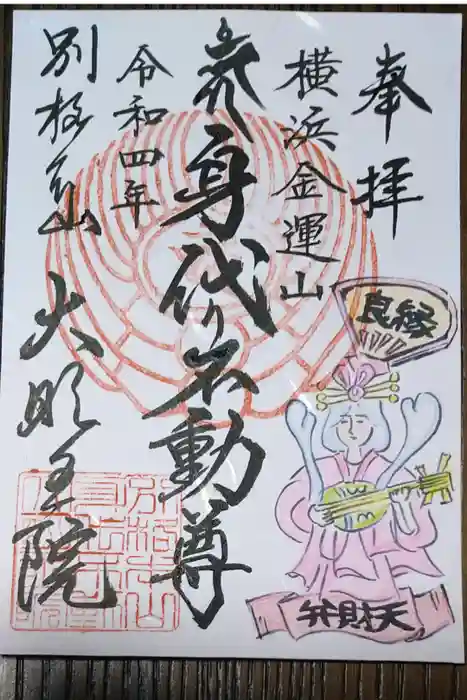 奉拝
横浜金運山
身代り不動尊
令和四年
別格本山 大明王院
良縁
弁財天